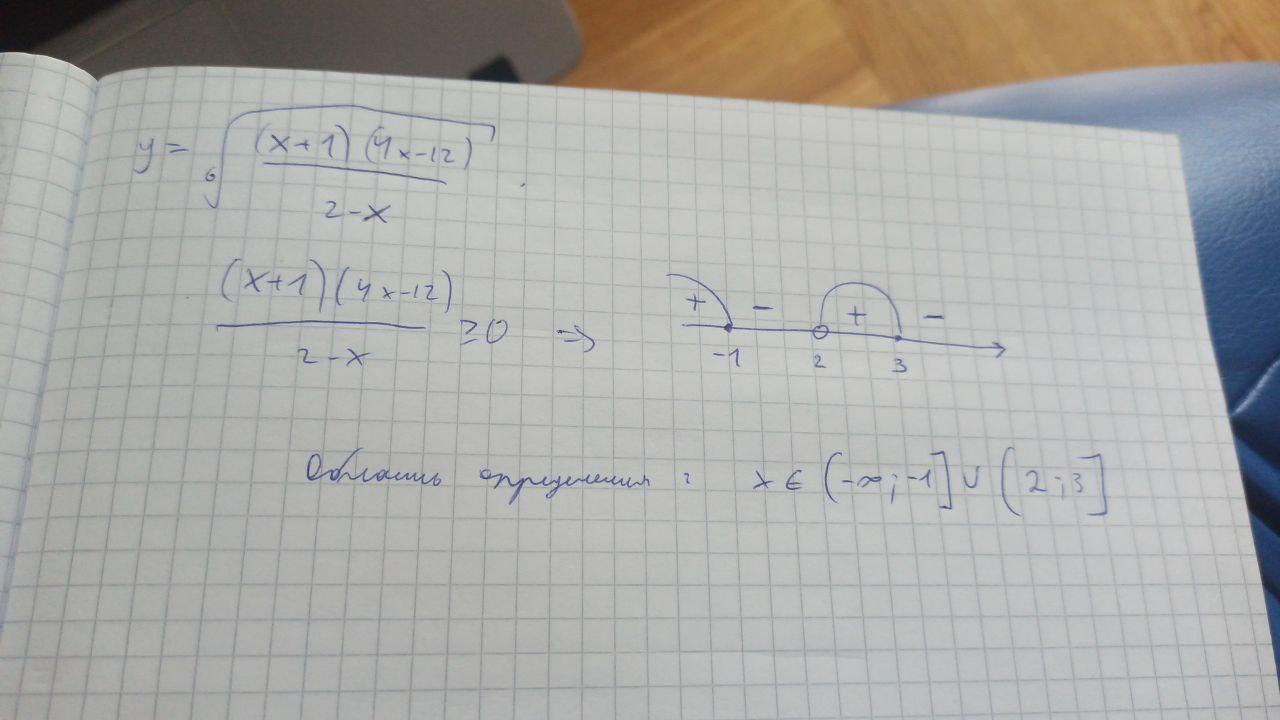 y = ⁶√((x+1)(4x-12)/(2-x))
(x+1)(4x-12)/(2-x) ≥ 0 ⇒ + - + -
-1 2 3
Область определения : x ∈ (-∞; -1] ∪ (2; 3]